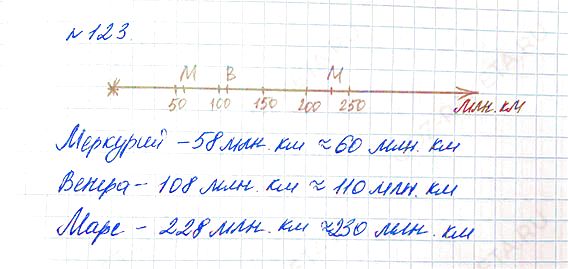 № 123.
М В М
50 100 150 200 250
млн. км
Меркурий – 58 млн. км ≈ 60 млн. км
Венера – 108 млн. км ≈ 110 млн. км
Марс – 228 млн. км ≈ 230 млн. км